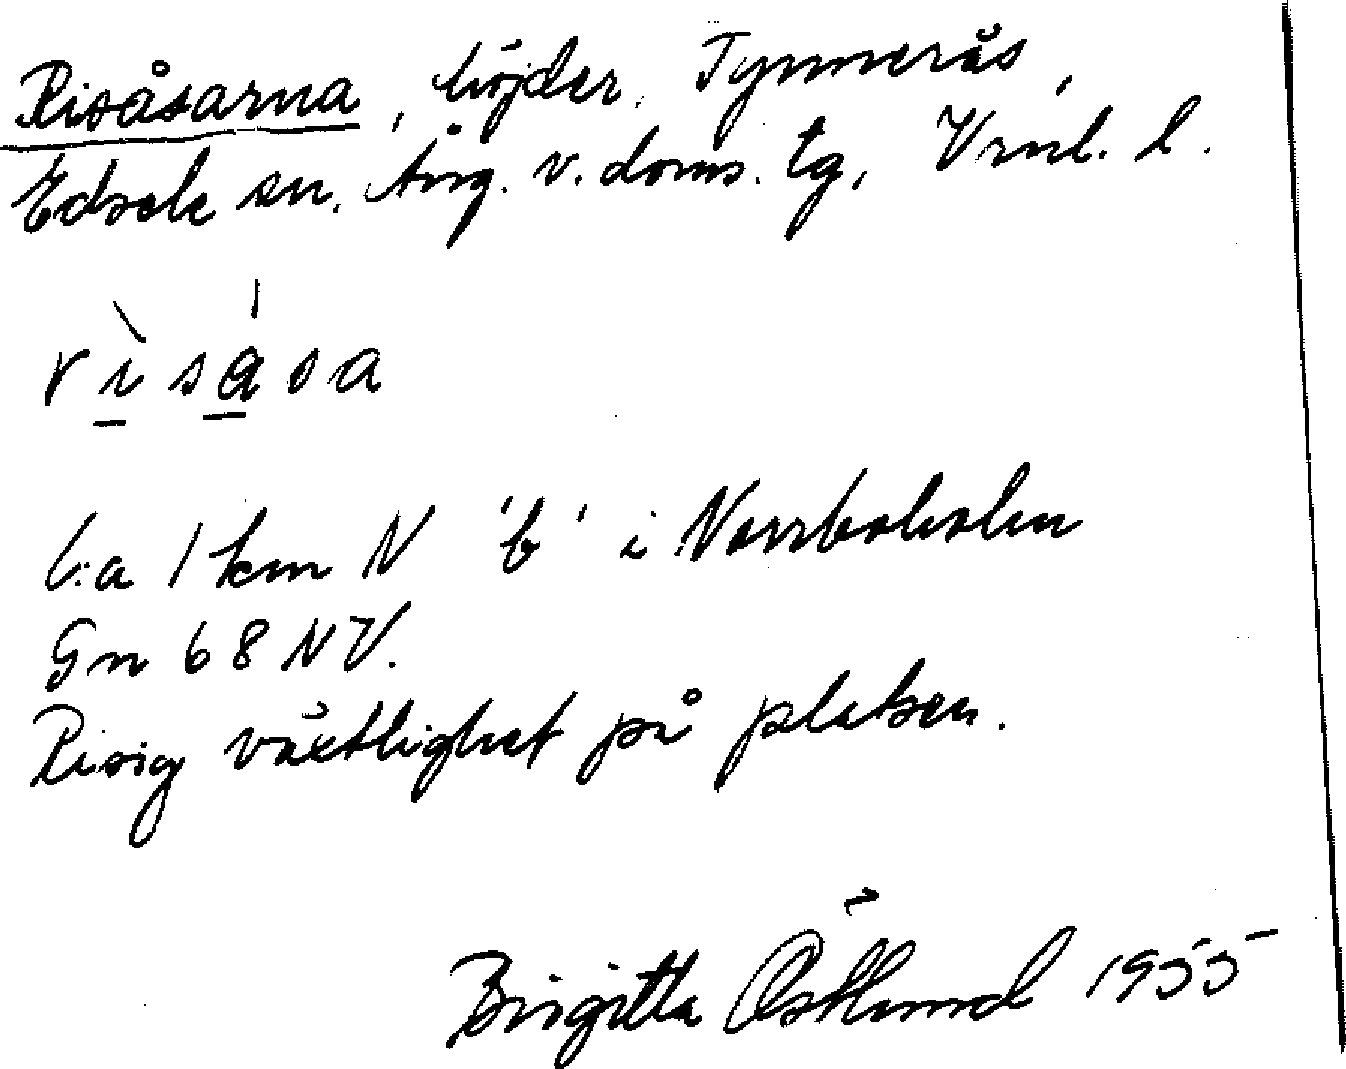 Risåsarna, höjder, Tynnerås,
Edsele sn. Ång. v. doms. tg, Vrnl. l.
r ì s å s a
C:a 1 km N 'b' i
Gn 68 NV.
Risig växtlighet på platsen.
Birgitta Östlund 1955